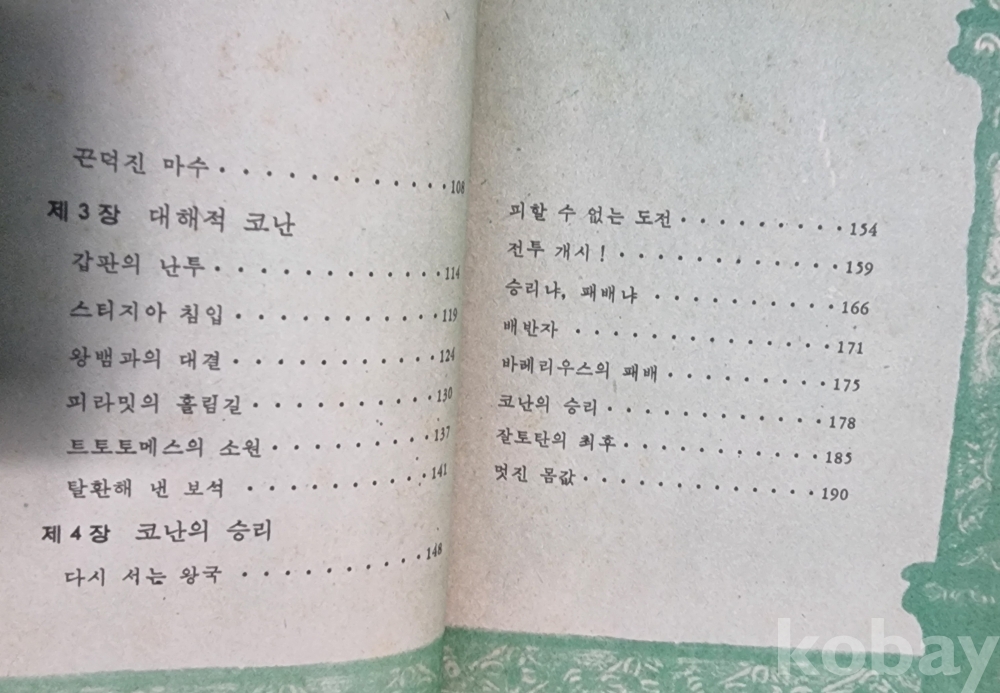 끈덕진 마수 · · · · · · · · · · · · 108
제 3 장 대해적 코난
갑판의 난투 · · · · · · · · · · · · 114
스티지아 침입 · · · · · · · · · · · 119
왕뱀과의 대결 · · · · · · · · · · · 124
피라밋의 홀림길 · · · · · · · · · · 130
트토토메스의 소원 · · · · · · · · · 137
탈환해 낸 보석 · · · · · · · · · · 141
제 4 장 코난의 승리
다시 서는 왕국 · · · · · · · · · · 148
피할 수 없는 도전 · · · · · · · · · 154
전투 개시! · · · · · · · · · · · · 159
승리냐, 패배냐 · · · · · · · · · · 166
배반자 · · · · · · · · · · · · · · 171
바레리우스의 패배 · · · · · · · · · 175
코난의 승리 · · · · · · · · · · · · 178
잘토탄의 최후 · · · · · · · · · · · 185
멋진 몸값 · · · · · · · · · · · · · 190
kobay